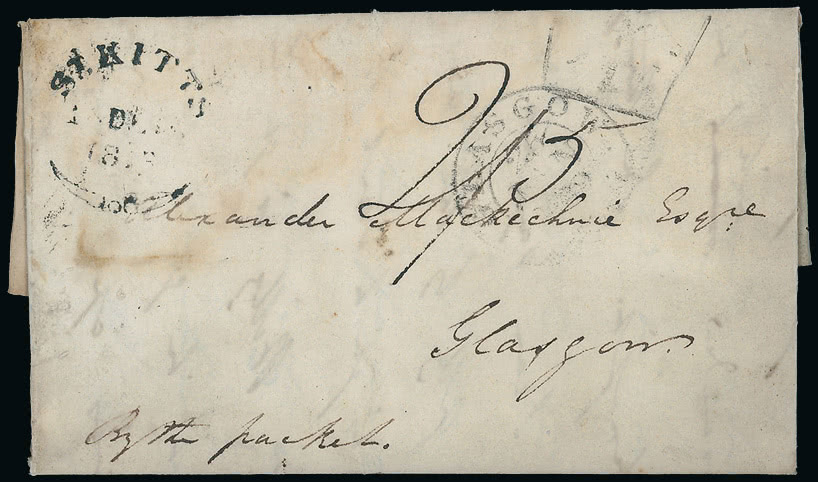 ST KITTS
DE
18
GLASGOW
2/5
Alexander Mackechnie Esqre
Glasgow
By the packet.